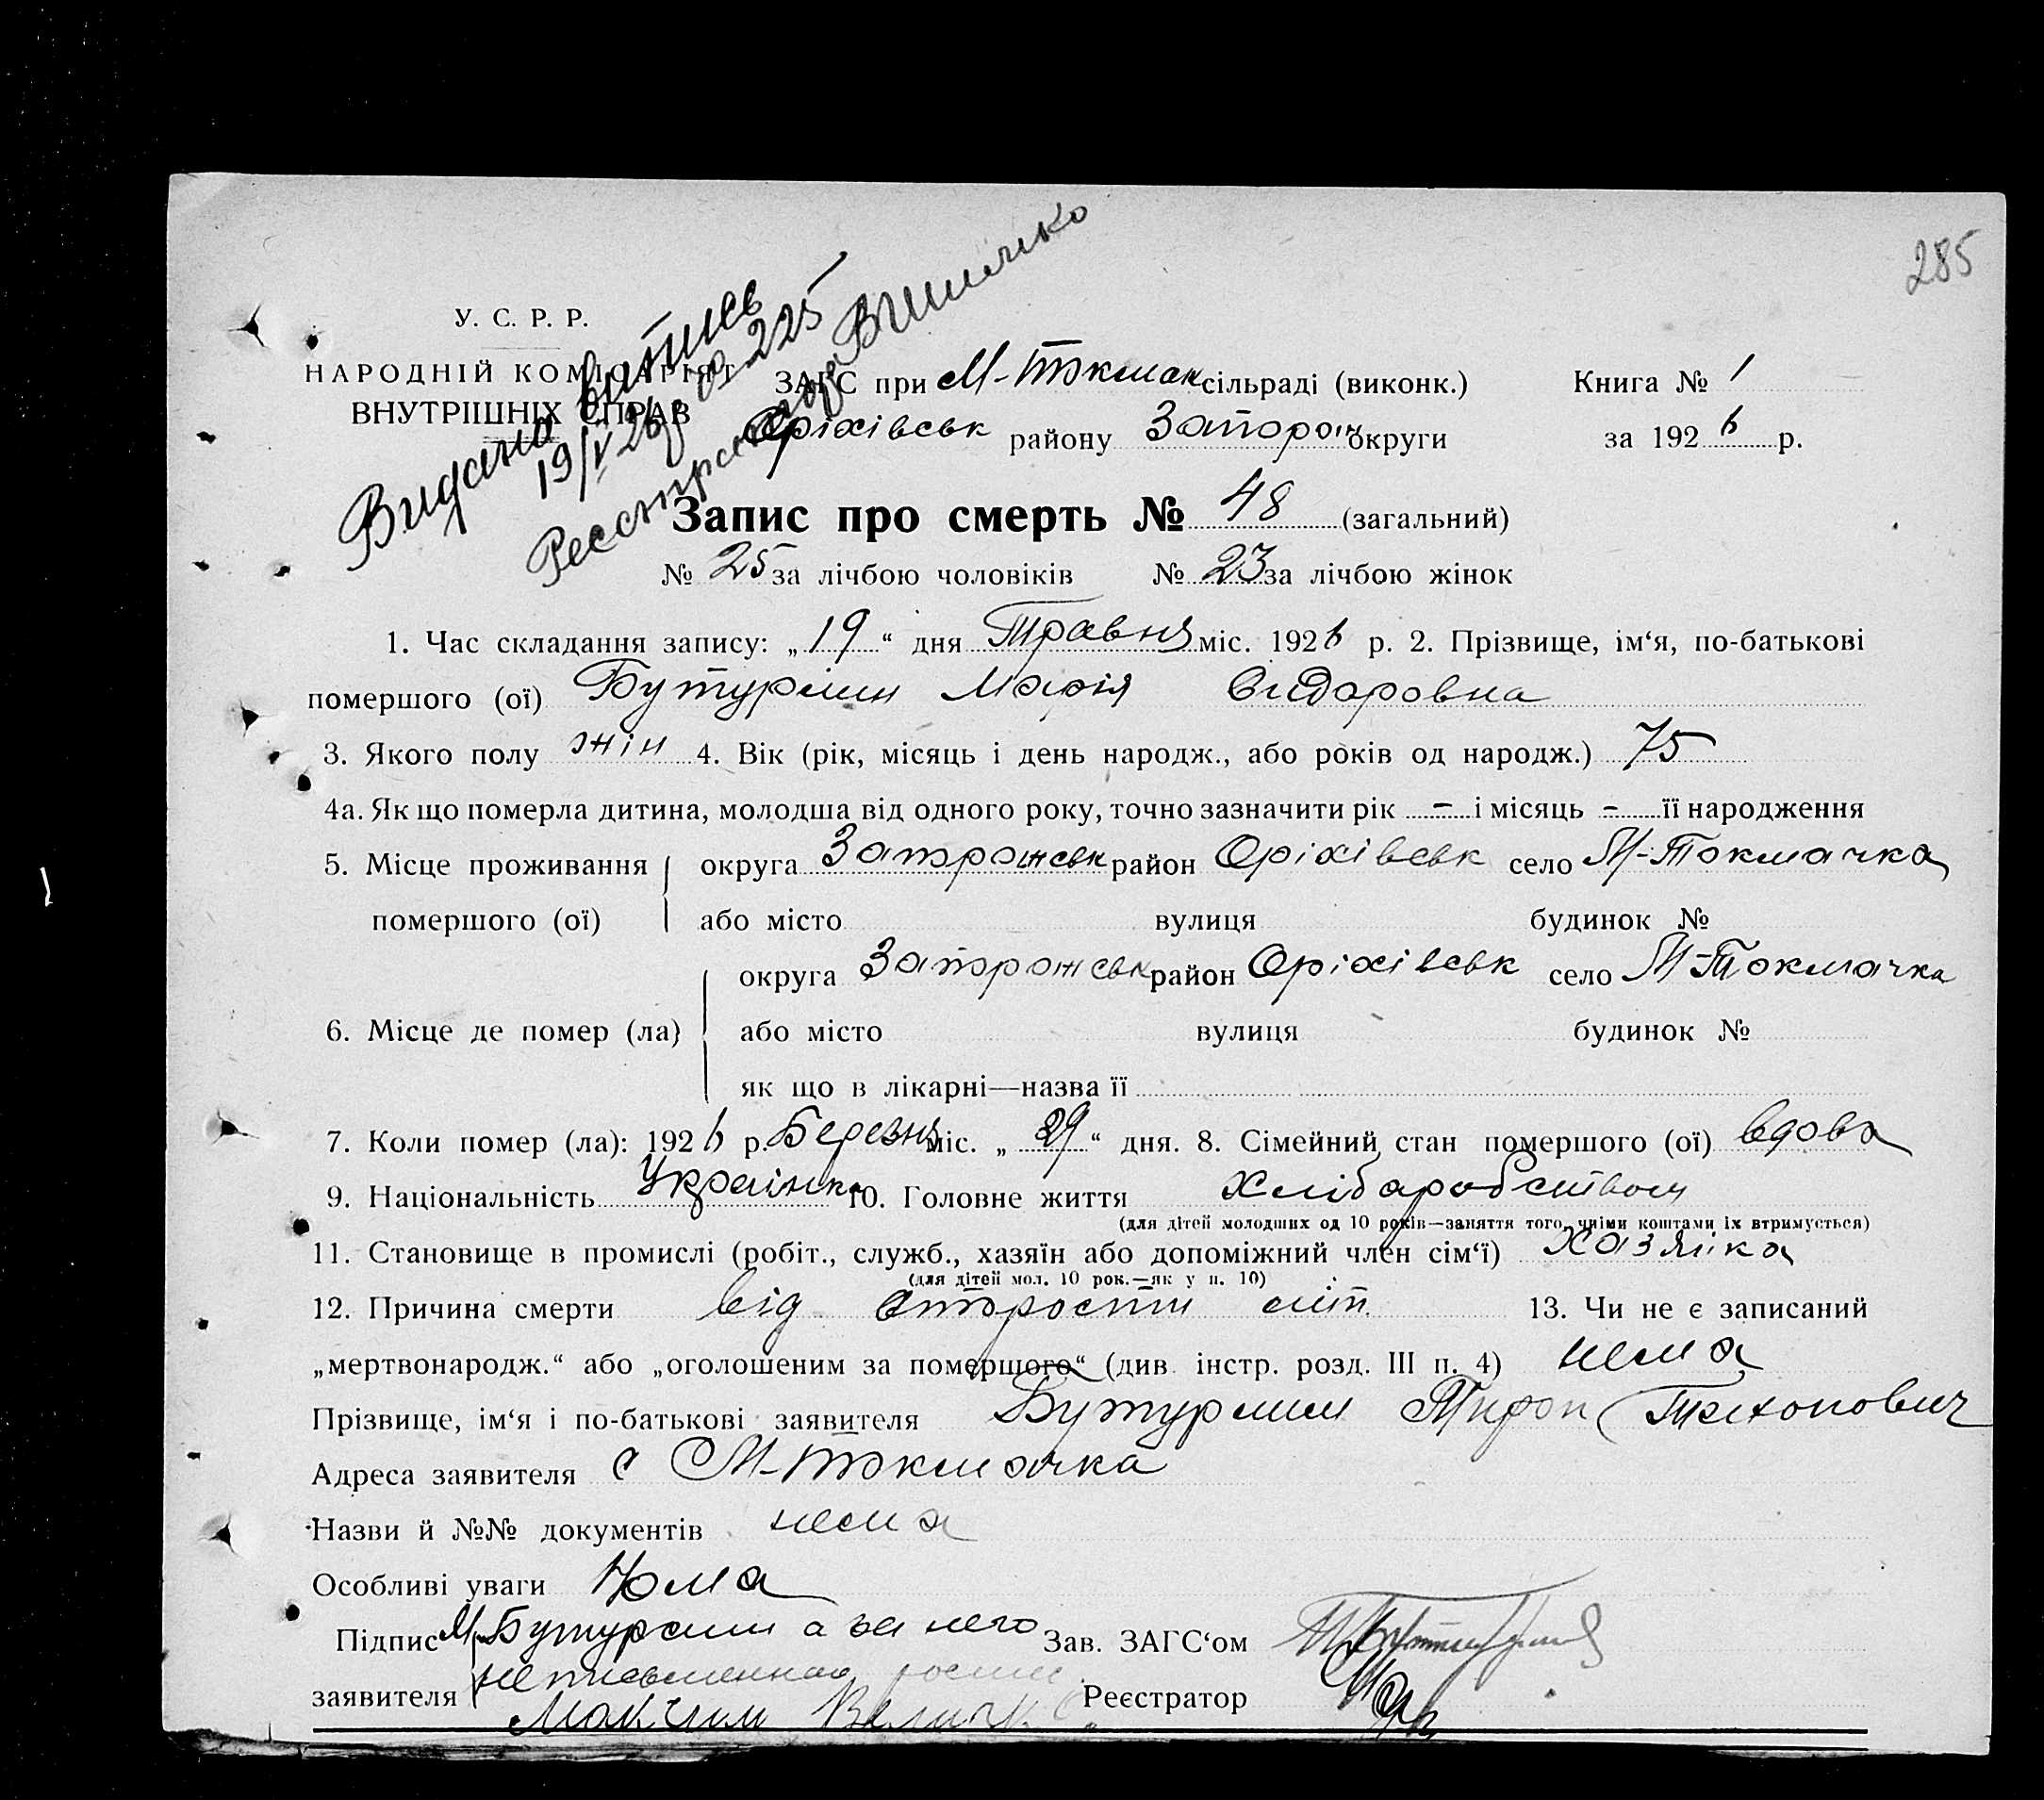 285
У. С. Р. Р.
НАРОДНІЙ КОМІСАРІЯТ
ВНУТРІШНІХ СПРАВ
Видано витись
19/V 26 р за 225
ЗАГС при М-Токмак сільраді (виконк.) Книга № 1
Оріхівськ району Запорож округи за 1926 р.
Запис про смерть № 48 (загальний)
№ 25 за лічбою чоловіків № 23 за лічбою жінок
1. Час складання запису: „19“ дня Травня міс. 1926 р. 2. Прізвище, ім‘я, по-батькові
помершого (ої) Бутурлин Марія Сидоровна
3. Якого полу жін 4. Вік (рік, місяць і день народж., або років од народж.) 75
4а. Як що померла дитина, молодша від одного року, точно зазначити рік – і місяць – її народження
5. Місце проживання округа Запорожськ район Оріхівськ село М-Токмачка
помершого (ої) або місто вулиця будинок №
округа Запорожськ район Оріхівськ село М-Токмачка
6. Місце де помер (ла) або місто вулиця будинок №
як що в лікарні—назва її
7. Коли помер (ла): 1926 р. Березня міс. „29“ дня. 8. Сімейний стан помершого (ої) вдова
9. Національність Українка 10. Головне життя Хлібаробством
(для дітей молодших од 10 років—заняття того, чиїми коштами їх втримується)
11. Становище в промислі (робіт., служб., хазяїн або допоміжний член сім‘ї) хазяїка
(для дітей мол. 10 рок.—як у п. 10)
12. Причина смерти від старости літ 13. Чи не є записаний
„мертвонародж.“ або „оголошеним за помершого“ (див. інстр. розд. III п. 4) нема
Прізвище, ім‘я і по-батькові заявителя Бутурлин Мирон Тихонович
Адреса заявителя с М-Токмачка
Назви й №№ документів нема
Особливі уваги Нема
Підпис М. Бутурлин а за него Зав. ЗАГС‘ом
заявителя Реєстратор
Максим